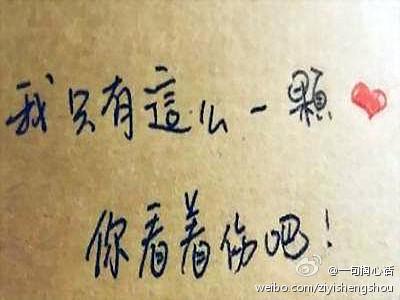 我只有這么一顆❤
你看着伤吧！
@一句阅心话
weibo.com/ziyishengshou